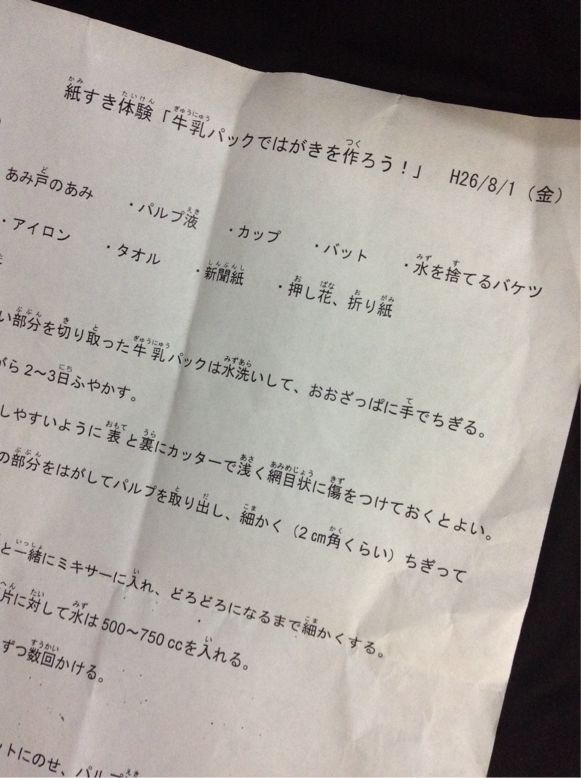 紙すき体験「牛乳パックではがきを作ろう！」 H26/8/1（金）
あみ戸のあみ ・パルプ液 ・カップ ・バット ・水を捨てるバケツ
・アイロン ・タオル ・新聞紙 ・押し花、折り紙
い部分を切り取った牛乳パックは水洗いして、おおざっぱに手でちぎる。
がら2～3日ふやかす。
しやすいように表と裏にカッターで浅く網目状に傷をつけておくとよい。
の部分をはがしてパルプを取り出し、細かく（2㎝角くらい）ちぎって
と一緒にミキサーに入れ、どろどろになるまで細かくする。
片に対して水は500～750㏄を入れる。
ずつ数回かける。
ットにのせ、パルプ